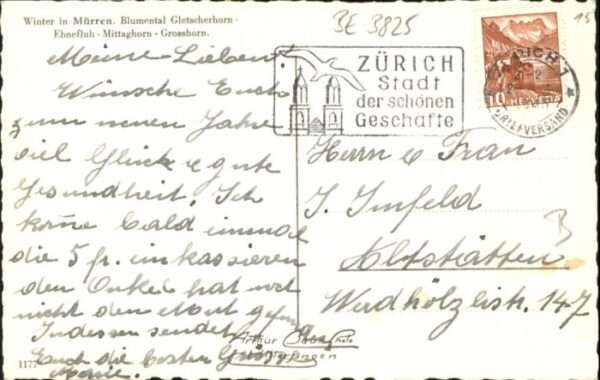 Winter in Mürren. Blumental Gletscherhorn -
Ebnefluh - Mittaghorn - Grosshorn.
BE 3825
15
Meine Lieben!
Wünsche Euch
zum neuen Jahre
viel Glück & gute
Gesundheit. Ich
kome bald einmal
die 5 fr. einkassieren
den Onkel hat
nicht den Mut
Indessen sendet
Euch die besten Grüsse
Marie.
ZÜRICH
Stadt
der schönen
Geschäfte
ZÜRICH 1
BRIEFVERSAND
10 HELVETIA
Herrn & Frau
J. Imfeld
Altstätten
Wardhölzlistr. 147
B
Arthur
Photo
1177